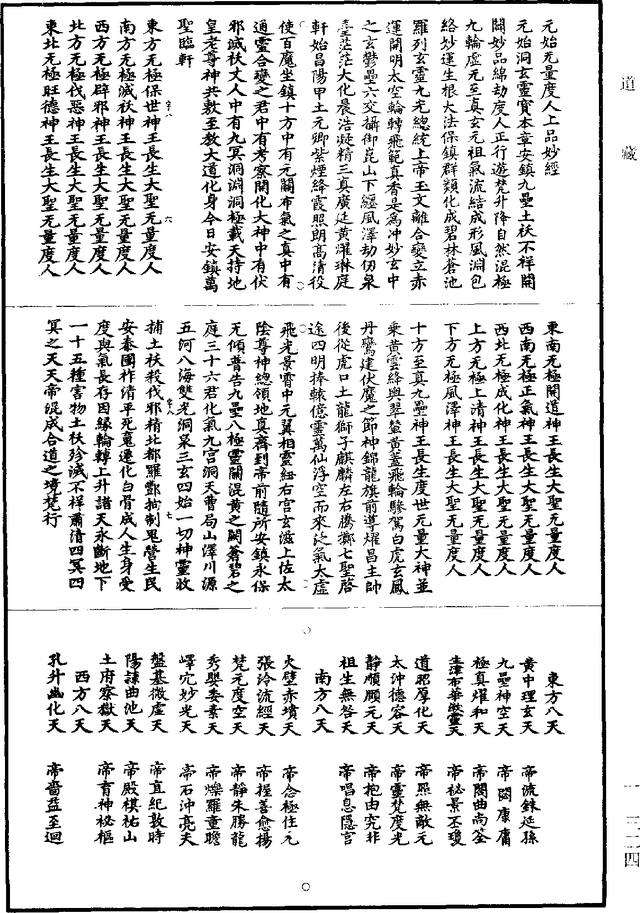 道藏
元始无量度人上品妙經
元始洞玄靈寶本章安鎮九壘土祅不祥開
闢妙品綿劫度人正行遊梵升降自然混極
九輪虛无至真玄元祖氣流結成形風淵包
絡妙運生根大法保鎮群類化成碧林蒼池
羅列玄靈九光總統上帝玉文離合變立赤
運開明太空輪轉飛範真香是為沖妙玄中
之玄鬱壘六交攝御昆山下纏風澤劫仞杲
臺茫茫大化晨浩凝精三真廣延黃燿琳庭
軒始昌陽甲土元卿紫煙絳霞照朗高清役
使百魔坐鎮十方中有元關布氣之真中有
通靈合變之君中有考察開化大神中有伏
邪滅祅丈人中有九冥洞淵洞極載天持地
皇老尊神共敷至教大道化身今日安鎮萬
聖臨軒
東方无極保世神王長生大聖无量度人
南方无極滅祅神王長生大聖无量度人
西方无極辟邪神王長生大聖无量度人
北方无極伐惡神王長生大聖无量度人
東北无極旺德神王長生大聖无量度人
東南无極開道神王長生大聖无量度人
西南无極正氣神王長生大聖无量度人
西北无極成化神王長生大聖无量度人
上方无極上清神王長生大聖无量度人
下方无極風澤神王長生大聖无量度人
十方至真九壘神王長生度世无量大神並
乘黃雲絳輿翠輦黃蓋飛輪驂駕白虎玄鳳
丹鸞建伏魔之節神錦龍旗前導燿昌主帥
後從虎口土龍獅子麒麟左右騰擲七聖啓
途四明捧轅億靈萬仙浮空而來泛氣太虛
飛光景霄中元翼相靈紐右宮玄滋上佐太
陰尊神總領地真齊到帝前隨所安鎮永保
无傾普告九壘八極靈關混黃之闕蒼碧之
庭三十六君化氣九宮洞天曹局山澤川源
五河八海雙光洞杲三玄四始一切神靈收
捕土祅殺伐邪精北都羅酆拘制鬼營生民
安泰國祚清平死䰟遷化白骨成人生身受
度與氣長存因緣輪轉上升諸天永斷地下
一十五種害物土祅殄滅不祥肅清四冥四
冥之天天帝混成合道之境梵行
東方八天
黃中理玄天 帝流銖延孫
九壘神空天 帝閟康庸
極真燿和天 帝閟曲尚荃
生津布華微靈天 帝祕景丕瓊
道昭厚化天 帝照無敵元
太沖德容天 帝靈梵度光
靜順顧元天 帝抱由究非
祖生無咎天 帝唱息隱宫
南方八天
火壁赤墳天 帝念極住元
張泠流經天 帝握善愈揚
梵元度空天 帝靜朱勝龍
秀嬰委素天 帝爍羅童瞻
嶧穴妙光天 帝石沖亮夫
盤基微虛天 帝直紀敦時
陽諫曲池天 帝殿棋祐山
土府察嶽天 帝育神祕樞
西方八天
孔升幽化天 帝嗇益至迴
一—三二四